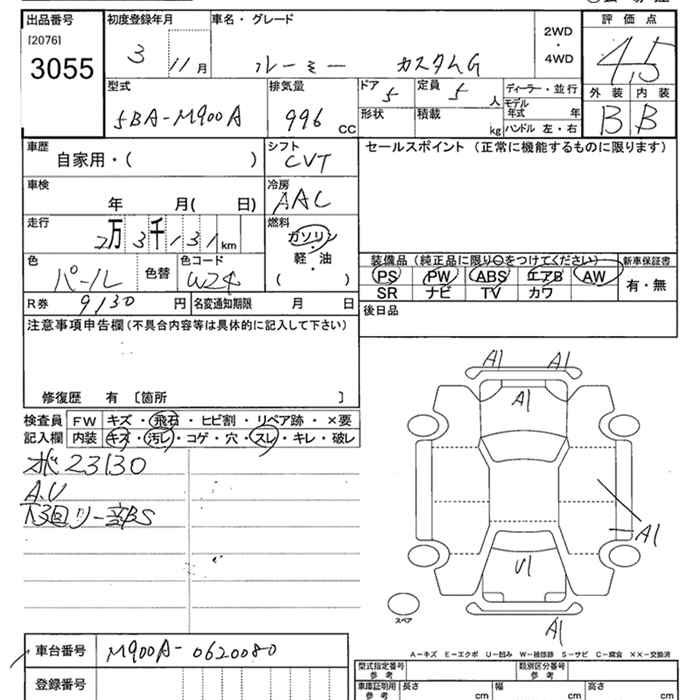 出品番号 初度登録年月 車名・グレード 評価点
[2076]
3055
3 11月 ルーミー カスタムG 2WD・4WD 4,5
型式 排気量 ドア 5 定員 5人 ディーラー・並行 外装 内装
5BA-M900A 996 CC 形状 積載 kg モデル年式 年 B B
ハンドル 左・右
車歴 自家用・( ) シフト CVT セールスポイント (正常に機能するものに限ります)
車検 年 月( 日) 冷房 AAC
走行 2万3千131km 燃料 ガソリン・軽・油 ( )
色 パール 色替 色コード W24
装備品 (純正品に限り○をつけてください) 新車保証書
PS PW ABS エアB AW 有・無
SR ナビ TV カワ
R券 9130円 名変通知期限 月 日 後日品
注意事項申告欄 (不具合内容等は具体的に記入して下さい)
修復歴 有 〔箇所 〕
検査員 FW キズ・飛石・ヒビ割・リペア跡・×要
記入欄 内装 キズ・汚レ・コゲ・穴・スレ・キレ・破レ
23130
A.U
下回り一部BS
A1 A1
A1
A1
U1
A1
スペア
A－キズ E－エクボ U－凹み W－補修跡 S－サビ C－腐食 ××－交換済
車台番号 M900A-0620080
登録番号
型式指定番号 参考 類別区分番号 参考
車庫証明用 参考 長さ cm 幅 cm 高さ cm